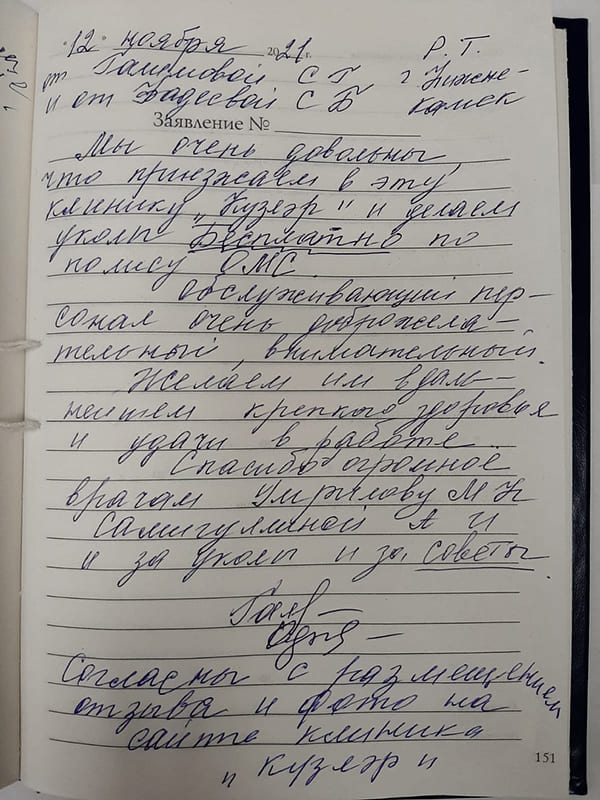 "12" ноября 2021 г. Р. Т.
от Галимовой С Г г Нижне-
и от Фадеевой С Б камск
Заявление №
Мы очень довольны,
что приезжаем в эту
клинику „Кузляр" и делаем
уколы Бесплатно по
полису ОМС.
обслуживающий пер-
сонал очень доброжела-
тельный, внимательный.
Желаем им в даль-
нейшем крепкого здоровья
и удачи в работе
Спасибо огромное
врачам М Н
Самигуллиной А И
и за уколы и за советы.
Согласны с размещением
отзыва и фото на
сайте клиника
„ Кузляр "
151